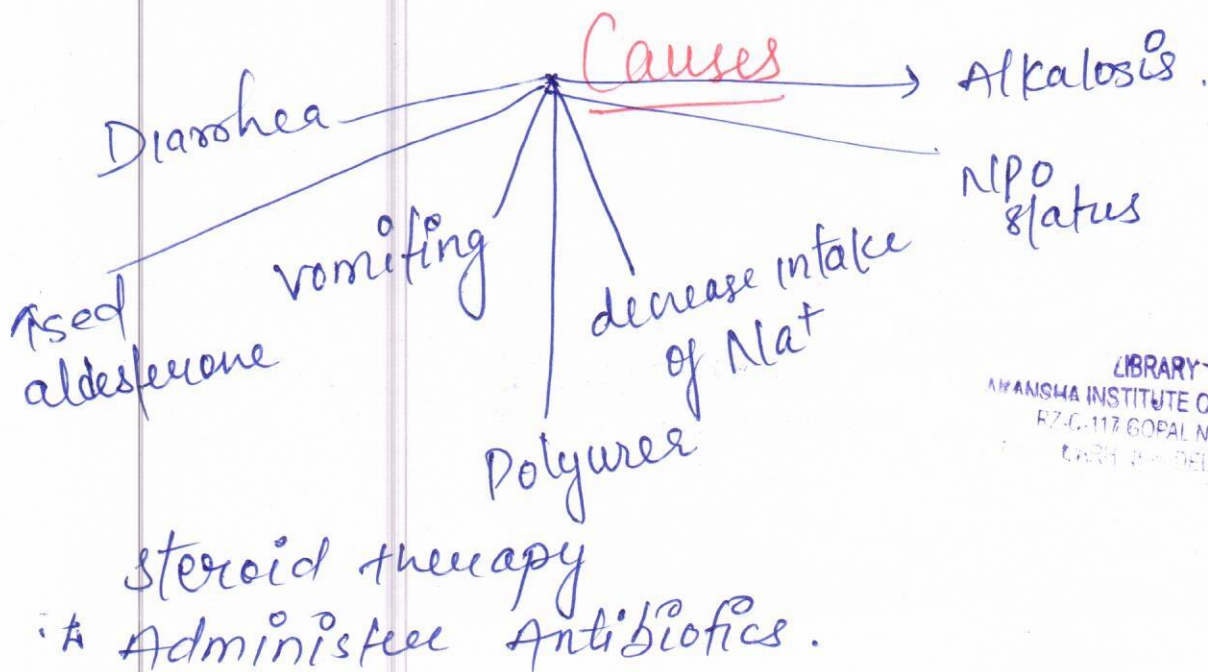 Causes
Diarrhea
Alkalosis.
NPO
status
↑sed
aldesterone
vomiting
decrease intake
of Na+
Polyurea
LIBRARY
INSTITUTE
GOPAL
steroid therapy
Administer Antibiotics.